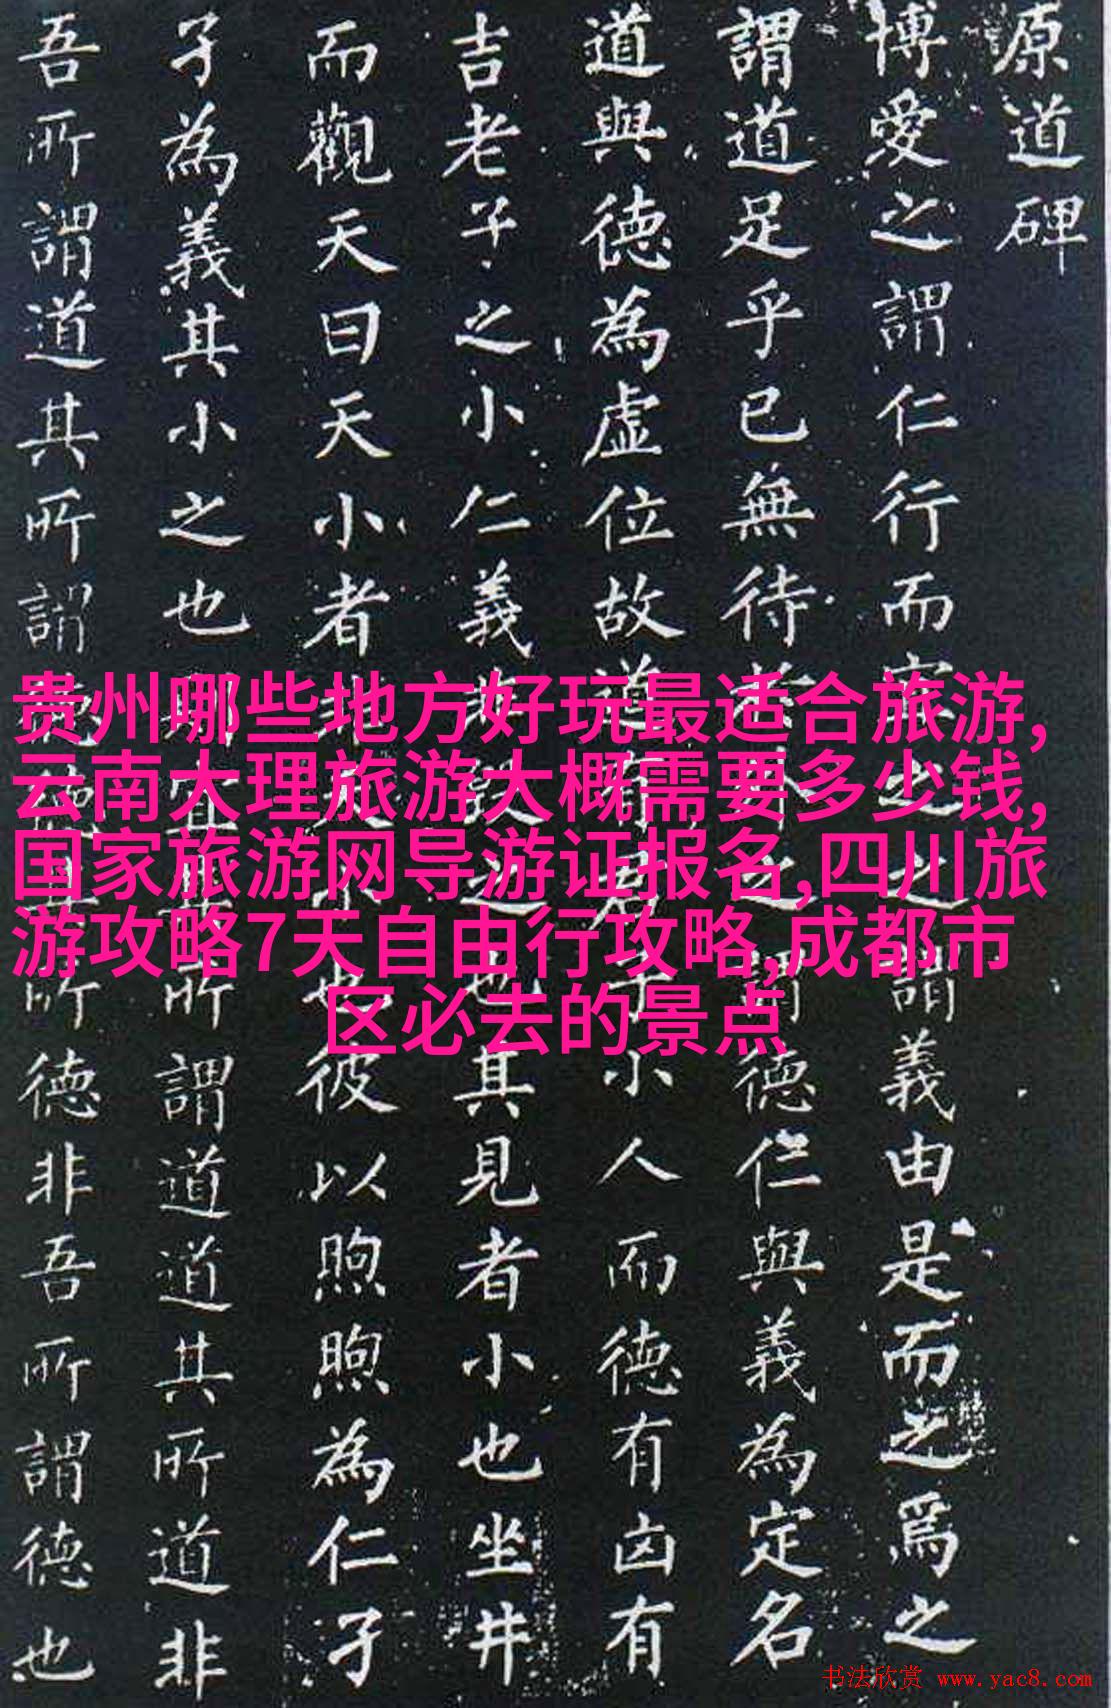 原道碑
博愛之謂仁行而宜之之謂義由是而之焉之
謂道足乎已無待於外之謂德仁與義為定名
道與德為虛位故道有君子小人而德有凶有
吉老子之小仁義非毀之也其見者小也坐井
而觀天曰天小者非天小也彼以煦煦為仁孑
孑為義其小之也則宜其所謂道道其所道非
吾所謂道其所謂德德其所德非吾所謂德也
贵州哪些地方好玩最适合旅游,
云南大理旅游大概需要多少钱,
国家旅游网导游证报名,四川旅
游攻略7天自由行攻略,成都市
区必去的景点
书法欣赏 www.yac8.com